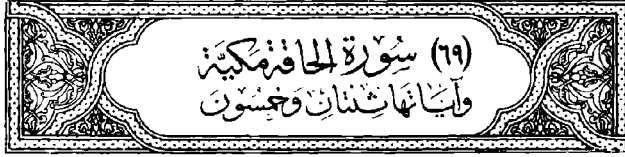 (٦٩) سُورَة الحَاقة مَكيَّة
وَآيَاتهَا ثِنتَان وَخَمْسُونَ